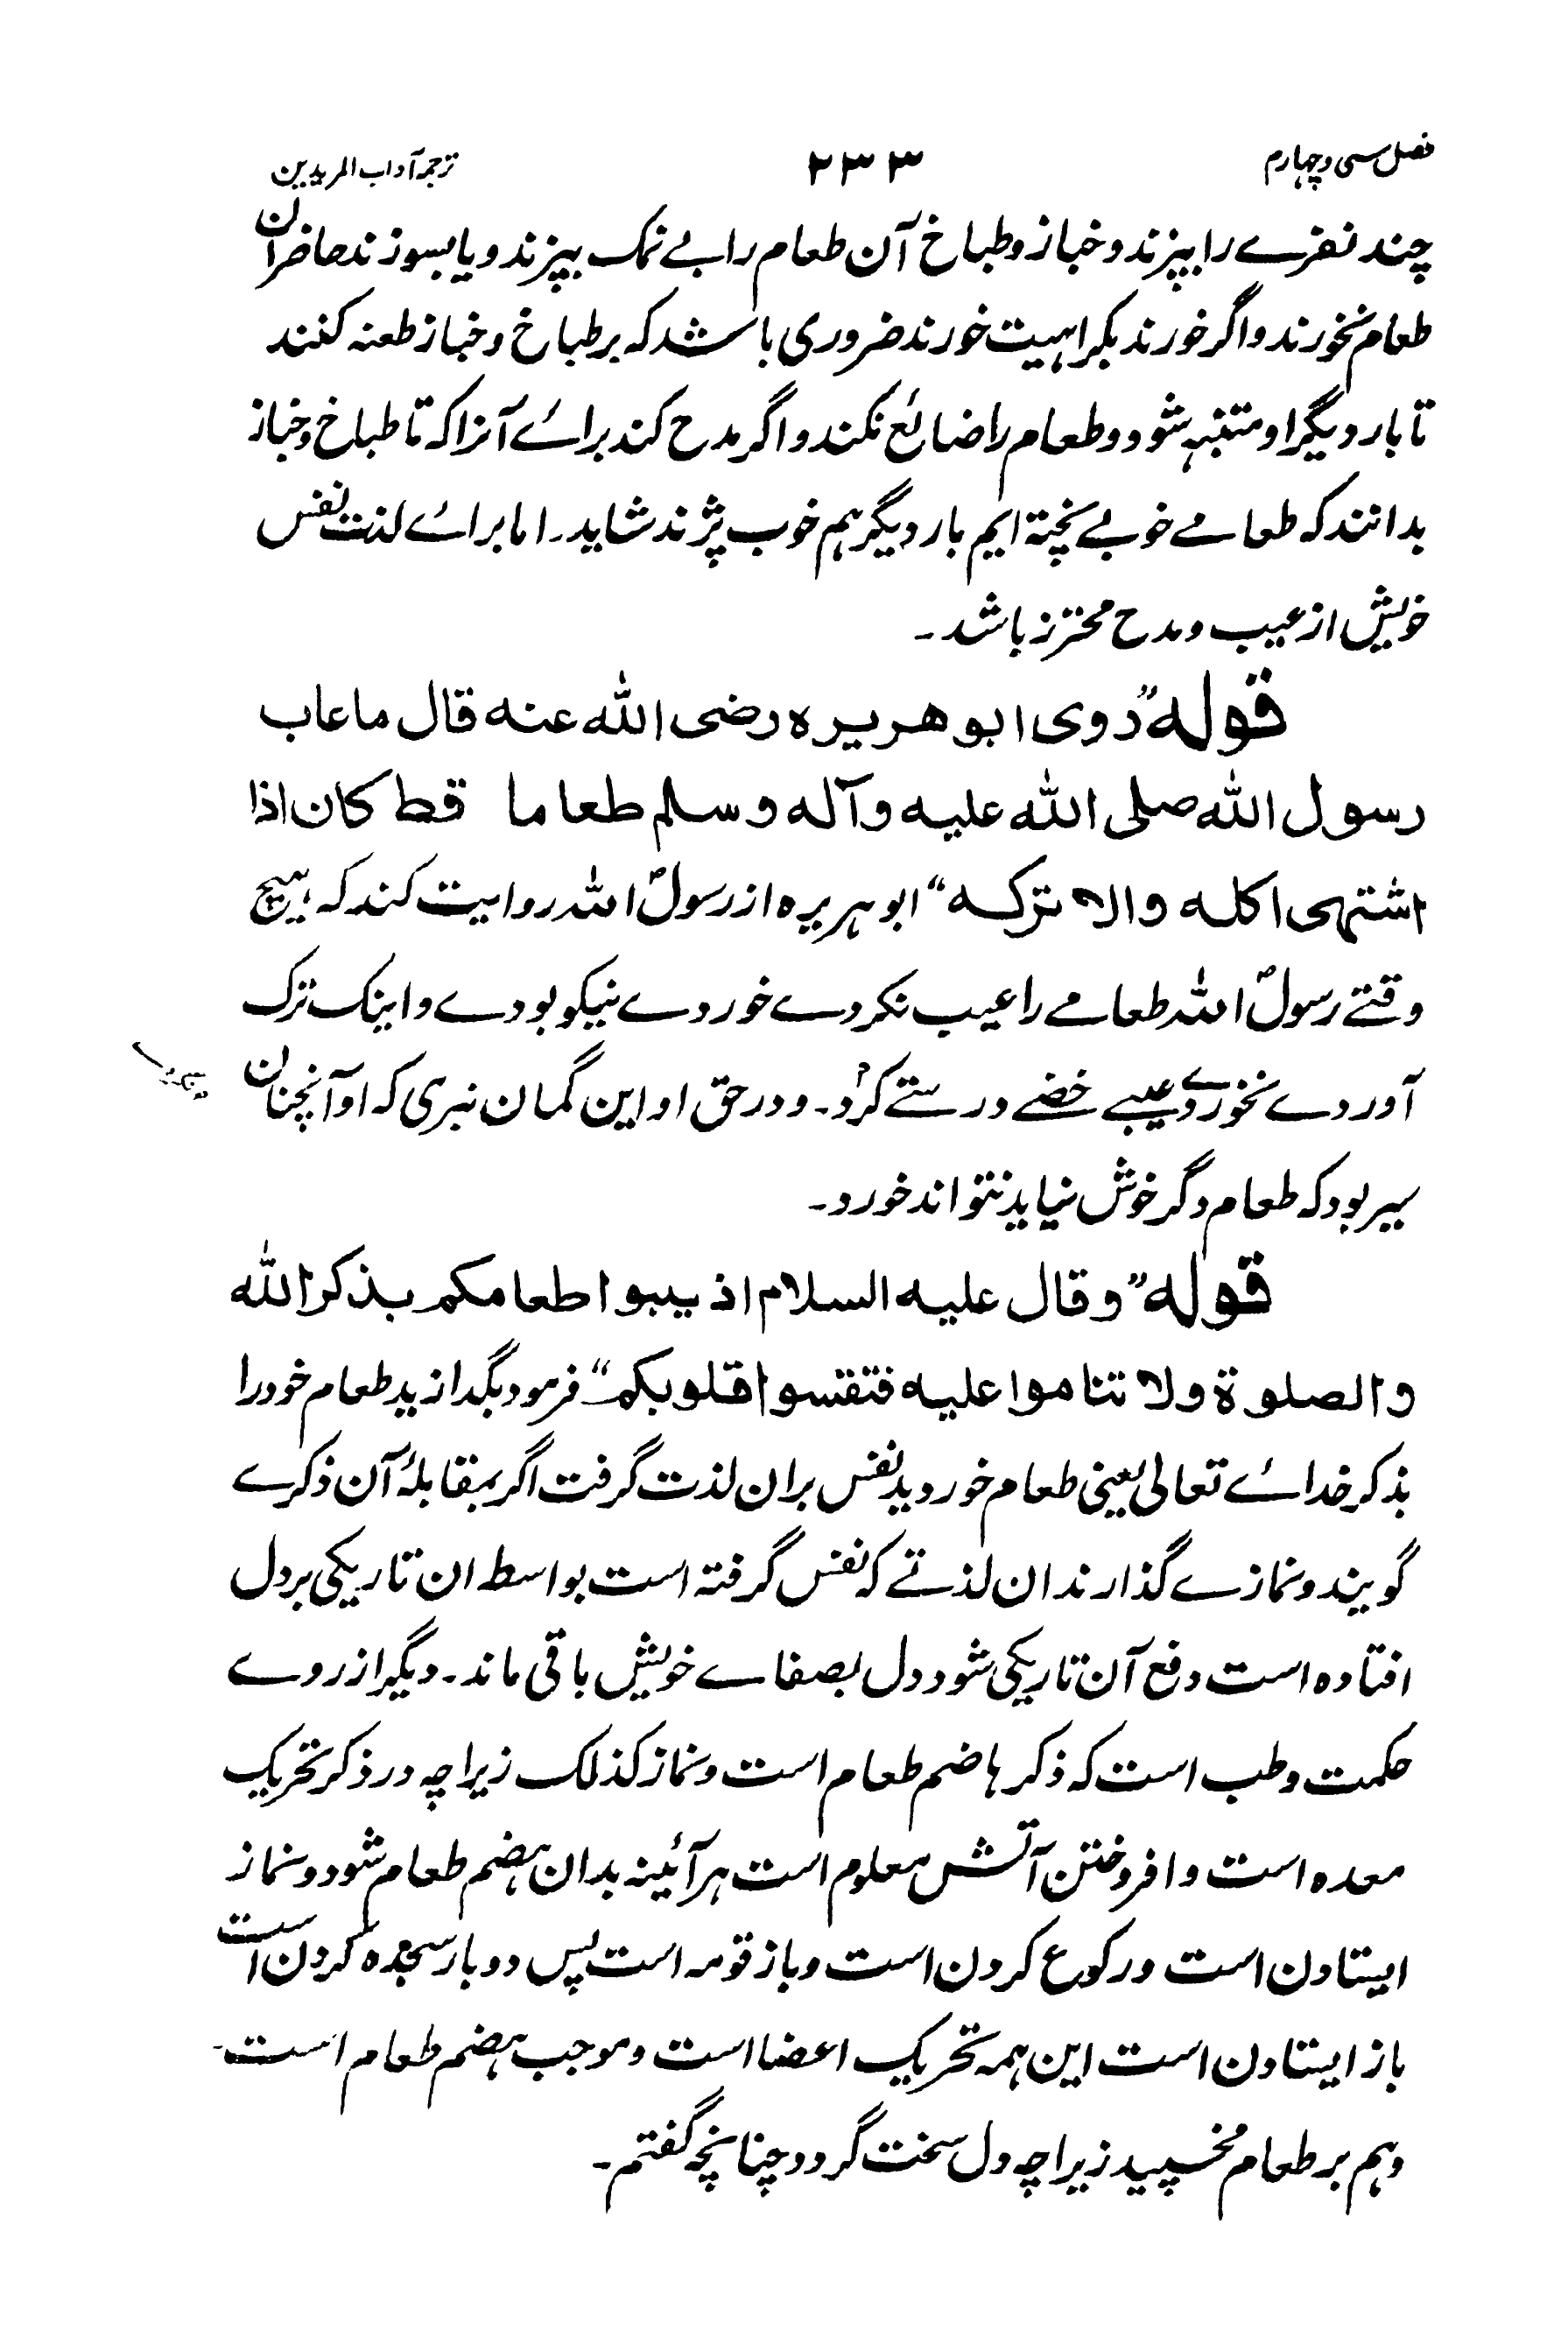 فصل سی و چهارم ۲۳۳ ترجمہ آداب المریدین
چند نفرے را بپزند و خباز و طباخ آن طعام را بے نمک بپزند و یا بسوزند حاضران
طعام نخورند و اگر خورند بکراہیت خورند ضروری باشد کہ بر طباخ و خباز طعنہ کنند
تا بار دیگر او متنبہ شود و طعام را ضائع نکند و اگر مدح کند براے آنرا کہ تا طباخ و خباز
بدانند کہ طعامے خوبے پختۃ ایم بار دیگر ہم خوب پژند شاید۔ اما براے لذت نفس
خویش از عیب و مدح محترز باشد۔
قوله ”روی ابو هریره رضی الله عنه قال ما عاب
رسول الله صلی الله علیه وآله وسلم طعاما قط کان اذا
اشتهی اکله والا ترکه“ ابو ہریرہ از رسولؐ اللہ روایت کند کہ ہیچ
وقتے رسولؐ اللہ طعامے را عیب نکردے خوردے نیکو بودے و اینک ترک
آوردے نخوردے عیبے خضے درستے کرد۔ و در حق او این گمان نبری کہ او آنچنان
سیر بود کہ طعام دگر خوش نیاید نتواند خورد۔
قوله ”وقال علیه السلام اذ یببوا طعامکم بذکر الله
والصلوة ولا تناموا علیه فتقسوا قلوبکم“ فرمود بگدازید طعام خود را
بذکر خداے تعالی یعنی طعام خوردید نفس بران لذت گرفت اگر بمقابلۂ آن ذکرے
گویند و نمازے گذارند ان لذتے کہ نفس گرفتہ است بواسط ان تاریکی بر دل
افتادہ است دفع آن تاریکی شود دل بصفاے خویش باقی ماند۔ دیگر از روے
حکمت و طب است کہ ذکر ہاضم طعام است و نماز کذلک زیراچہ در ذکر تحریک
معدہ است و افروختن آتش معلوم است ہر آئینہ بدان ہضم طعام شود و نماز
ایستادن است و رکوع کردن است و باز قومہ است پس دو بار سجدہ کردن است
باز ایستادن است این ہمہ تحریک اعضا است و موجب ہضم طعام است۔
و ہم بر طعام مخسپید زیراچہ دل سخت گردد چنانچہ گفتم۔